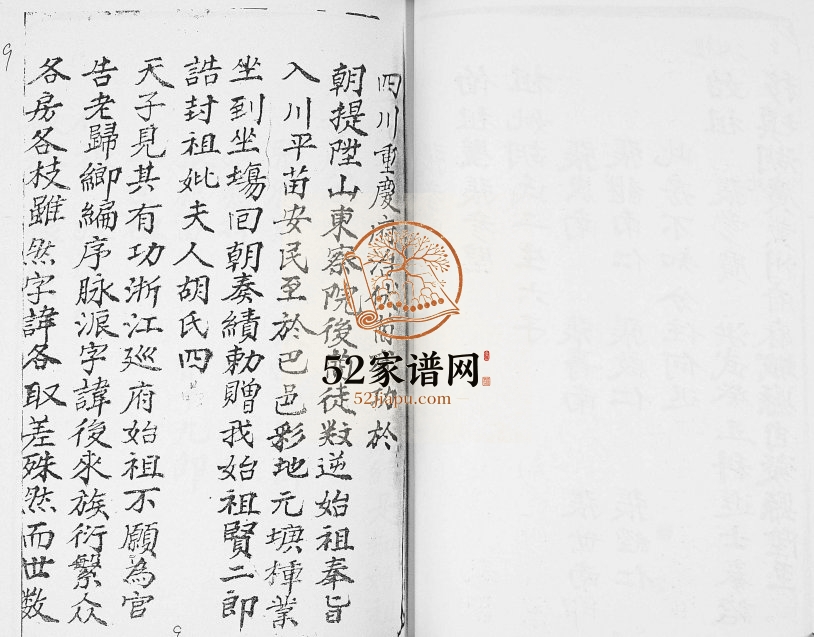 四川重慶府治於
朝提陞山東察院後徒欺逆始祖奉旨
入川平苗安民至於巴邑彩地元㙈楎業
坐到坐塲回朝奏績勅贈我始祖賢二郎
誥封祖妣夫人胡氏四
天子見其有功浙江廵府始祖不願為官
告老歸鄉編序脉派字諱後來族衍繁众
各房各枝雖然字諱各取差殊然而世数
52家谱网
52jiapu.com
9
9